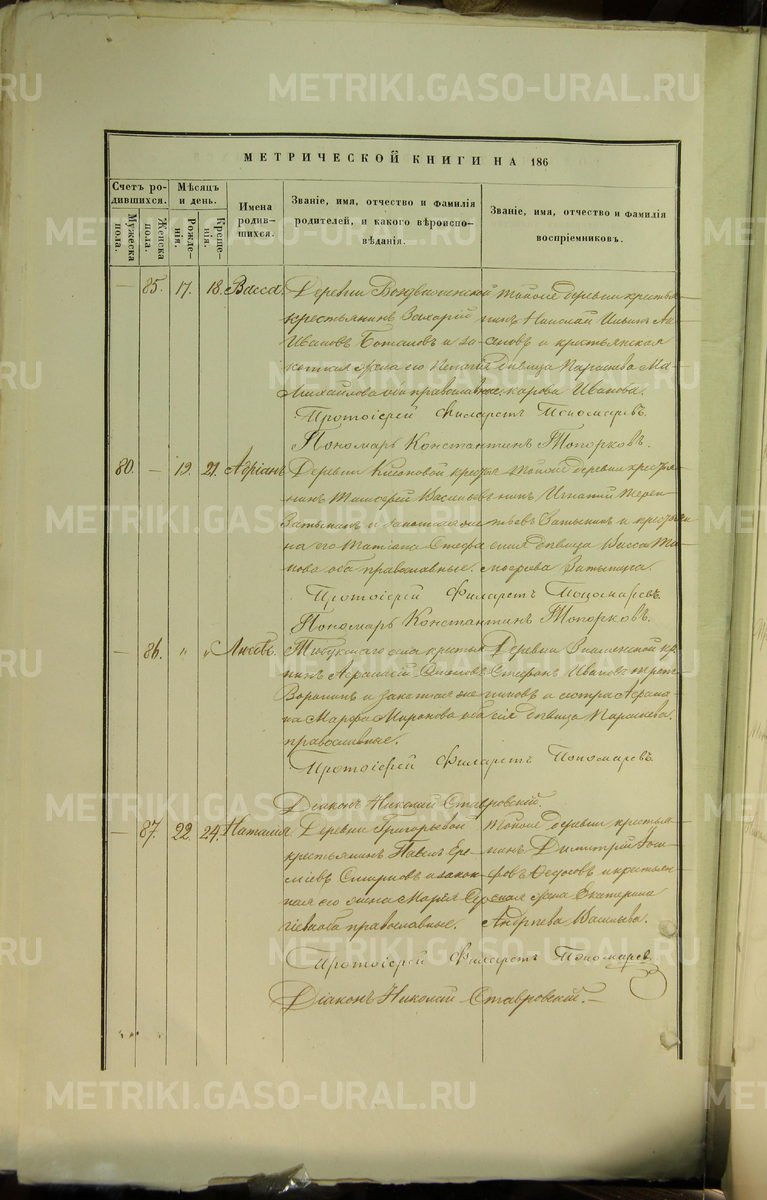 МЕТРИЧЕСКОЙ КНИГИ НА 186
Счетъ ро-
дившихся.
Мужеска
пола.
Женска
пола.
Мѣсяцъ
и день.
Рожде-
нія.
Креще-
нія.
Имена
родив-
шихся.
Званіе, имя, отчество и фамилія
родителей, и какого вѣроиспо-
вѣданія.
Званіе, имя, отчество и фамилія
воспріемниковъ.
— 85. 17. 18. Васса.
Деревни Воздвиженской
крестьянинъ Захарій
Ивановъ и за-
конная жена его
Михайлова оба православные.
тойже деревни крестья-
нинъ Николай Ильинъ
и крестьянская
дѣвица Параскева Ма-
карова Иванова.
Протоіерей Филаретъ Пономаревъ.
Пономарь Константинъ Топорковъ.
80. — 19. 21. Адріанъ
Деревни крестья
нинъ Василь
и законная же
на его Татіана Стефа
нова оба православные.
Тойже деревни крестья
нинъ Игнатій Терен
тьевъ и крестьян
ская дѣвица Васса Ти
моѳеева
Протоіерей Филаретъ Пономаревъ.
Пономарь Константинъ Топорковъ.
— 86. " " Любовь.
села крестья
нинъ
Воронинъ и законная же
на Марфа Миронова оба
православные.
Деревни Знаменской кр.
Стефанъ Ивановъ
и сестра
дѣвица Параскева.
Протоіерей Филаретъ Пономаревъ.
Діаконъ Николай Ставровскій.
— 87. 22. 24. Наталія
Деревни Григорьевой
крестьянинъ Павелъ Ере-
мѣевъ Смирновъ и закон-
ная его жена Марья Сер-
гіева оба православные.
Тойже деревни крестья-
нинъ Димитрій
Ѳедосовъ и крестьян
ская жена Екатерина
Андреева Васильева.
Протоіерей Филаретъ Пономаревъ.
Діаконъ Николай Ставровскій. —
METRIKI.GASO-URAL.RU